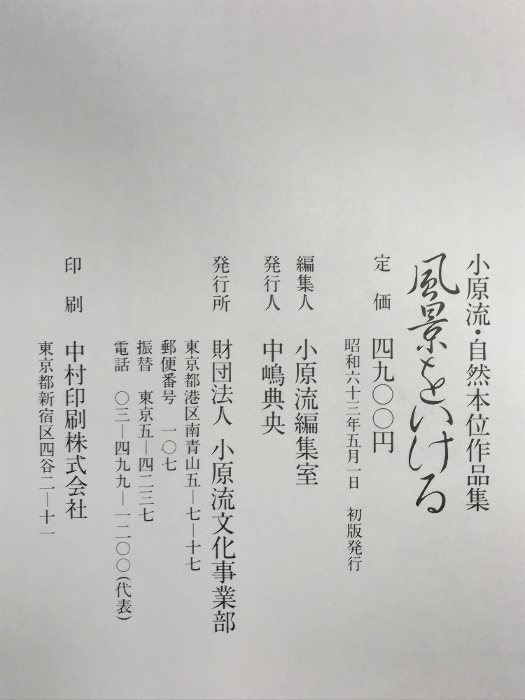 小原流・自然本位作品集
風景をいける
定価 四九〇〇円
昭和六十三年五月一日 初版発行
編集人 小原流編集室
発行人 中嶋典央
発行所 財団法人 小原流文化事業部
東京都港区南青山五―七―十七
郵便番号 一〇七
振替 東京五―四二三七
電話 〇三―四九九―一二〇〇(代表)
印刷 中村印刷株式会社
東京都新宿区四谷二―十一